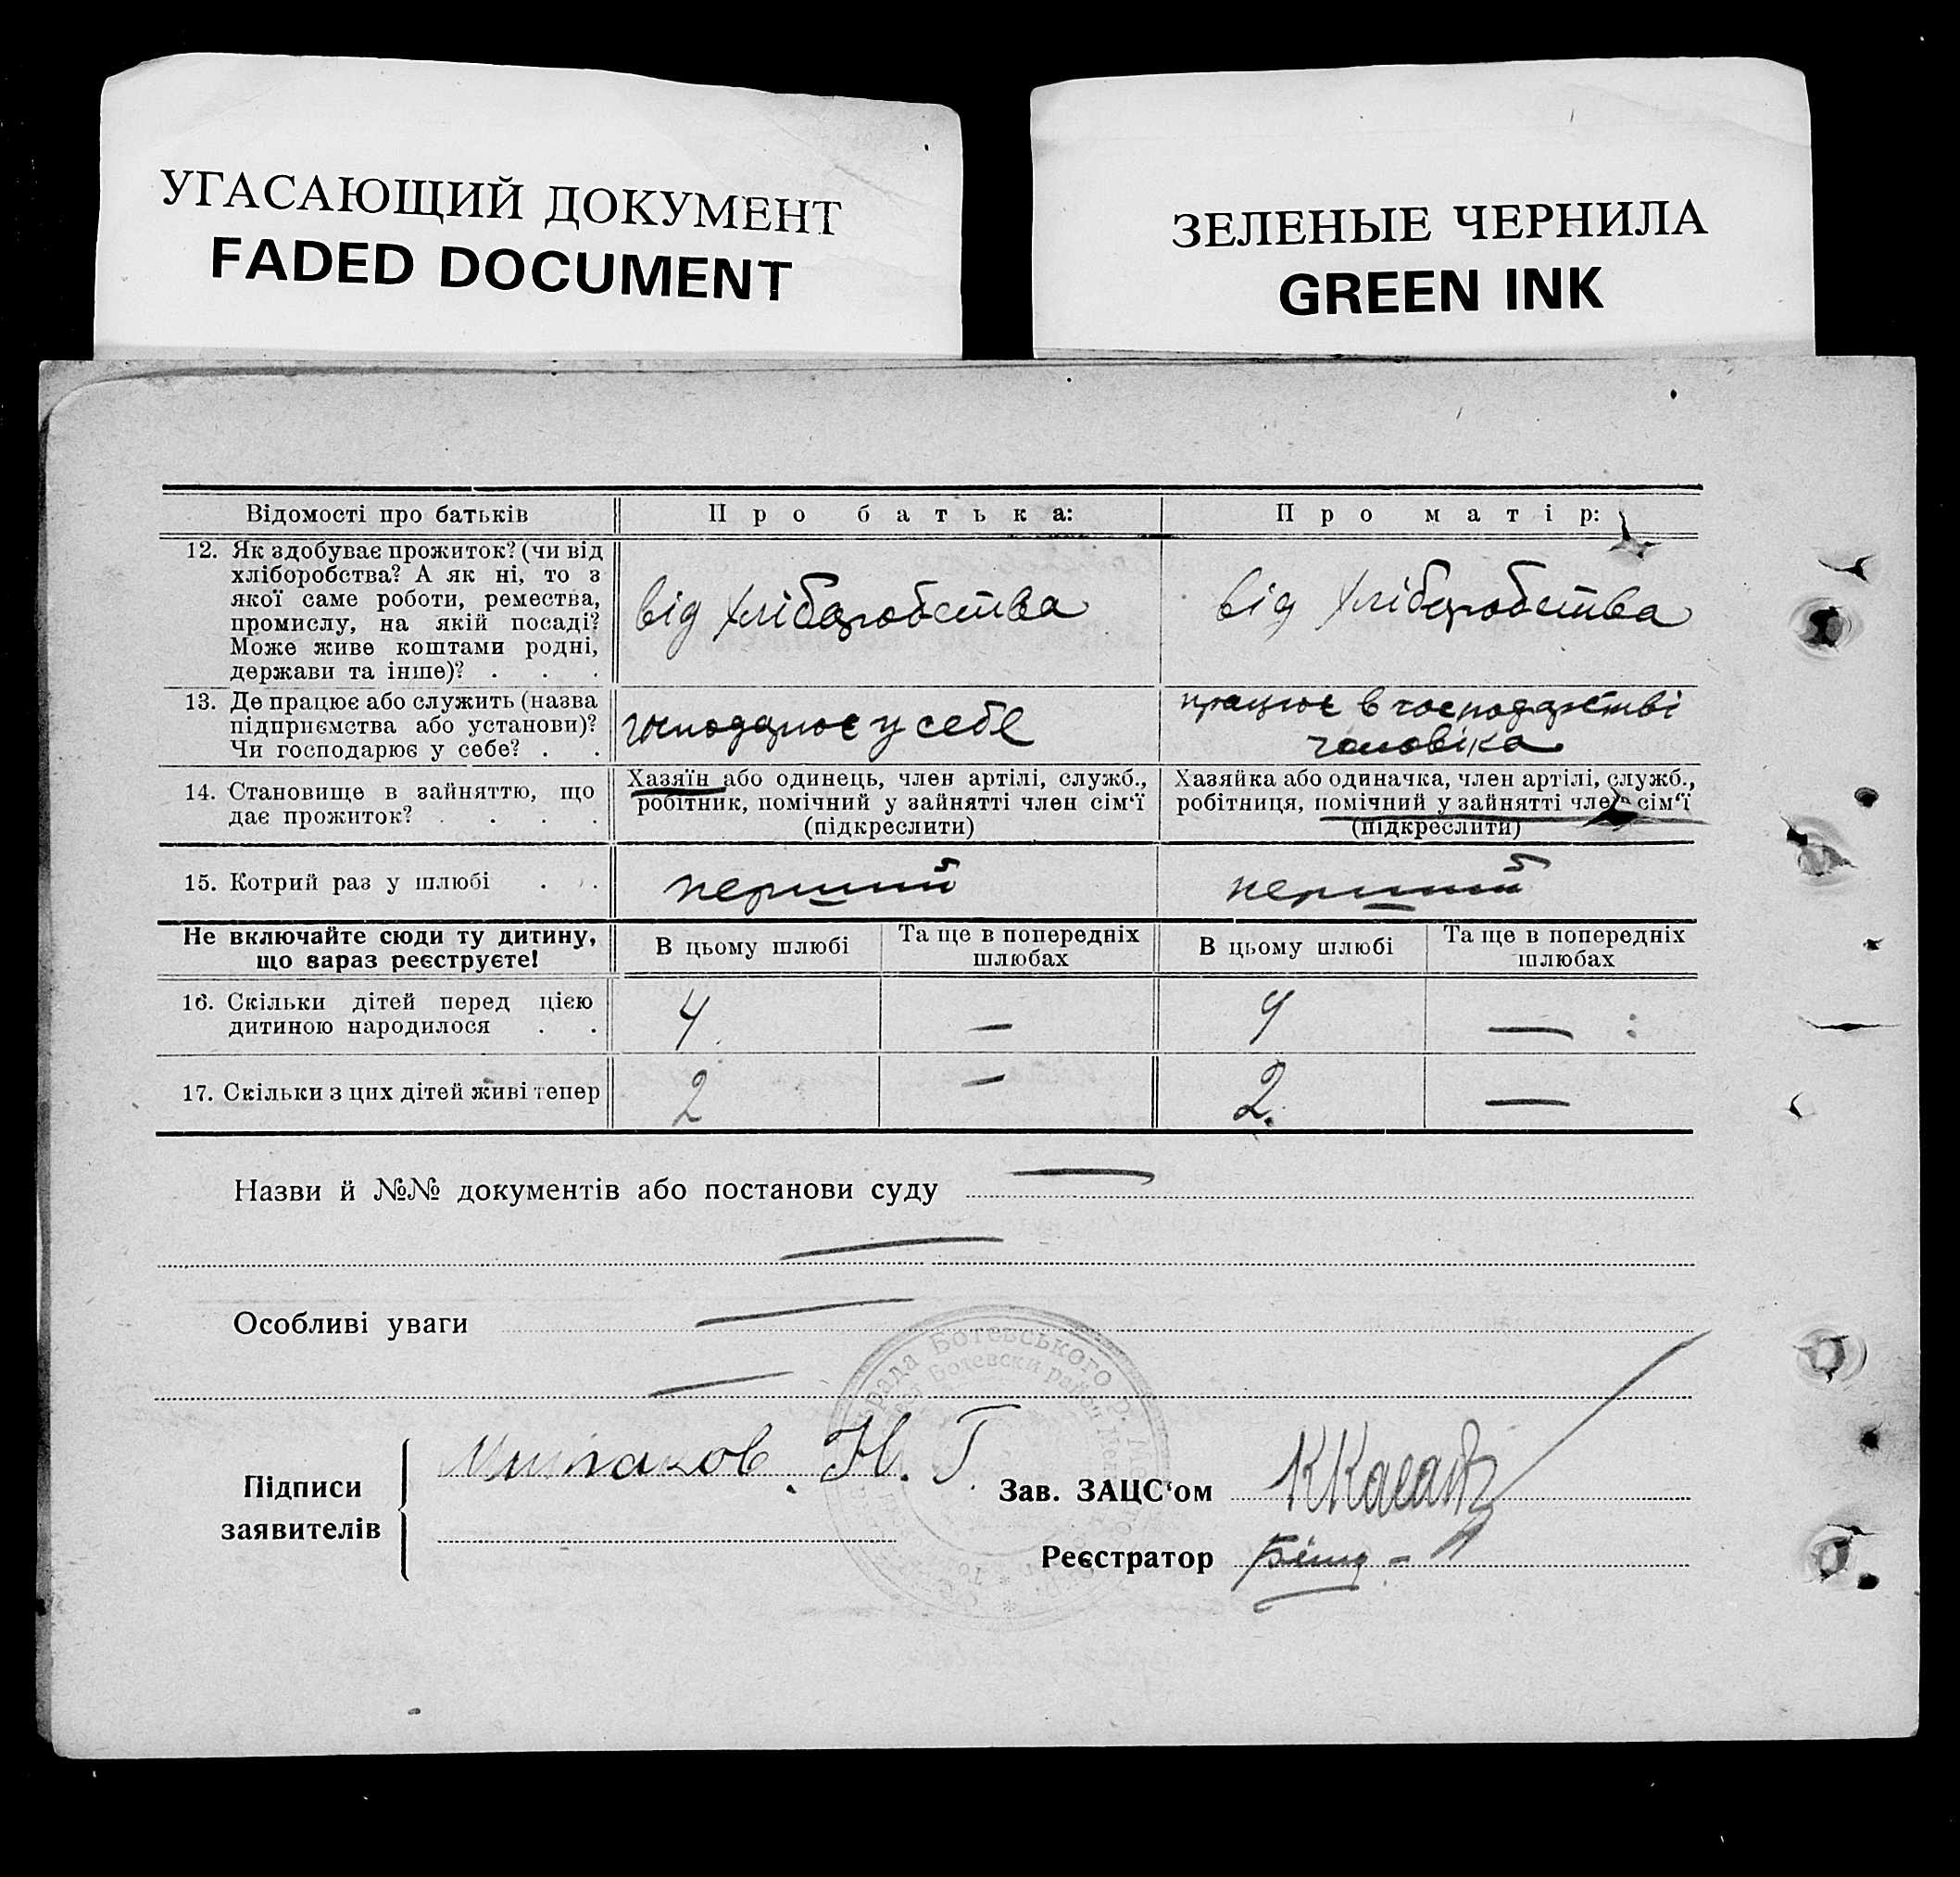 УГАСАЮЩИЙ ДОКУМЕНТ
FADED DOCUMENT
ЗЕЛЕНЫЕ ЧЕРНИЛА
GREEN INK
Відомості про батьків
Про батька:
Про матір:
12. Як здобуває прожиток? (чи від
хліборобства? А як ні, то з
якої саме роботи, ремества,
промислу, на якій посаді?
Може живе коштами родні,
держави та інше)? . . .
від хліборобства
від хліборобства
13. Де працює або служить (назва
підприємства або установи)?
Чи господарює у себе? . .
господарює у себе
працює в господарстві
чоловіка
14. Становище в зайняттю, що
дає прожиток? . . . .
Хазяїн або одинець, член артілі, служб.,
робітник, помічний у зайнятті член сім‘ї
(підкреслити)
Хазяйка або одиначка, член артілі, служб.,
робітниця, помічний у зайнятті член сім‘ї
(підкреслити)
15. Котрий раз у шлюбі . .
перший
перший
Не включайте сюди ту дитину,
що зараз реєструєте!
В цьому шлюбі
Та ще в попередніх
шлюбах
В цьому шлюбі
Та ще в попередніх
шлюбах
16. Скільки дітей перед цією
дитиною народилося . .
4
—
4
—
17. Скільки з цих дітей живі тепер
2
—
2
—
Назви й №№ документів або постанови суду —
—
Особливі уваги —
—
рада Ботевського р.
Ботевски район
Підписи
заявителів
Н. Г.
Зав. ЗАЦС‘ом
Реєстратор